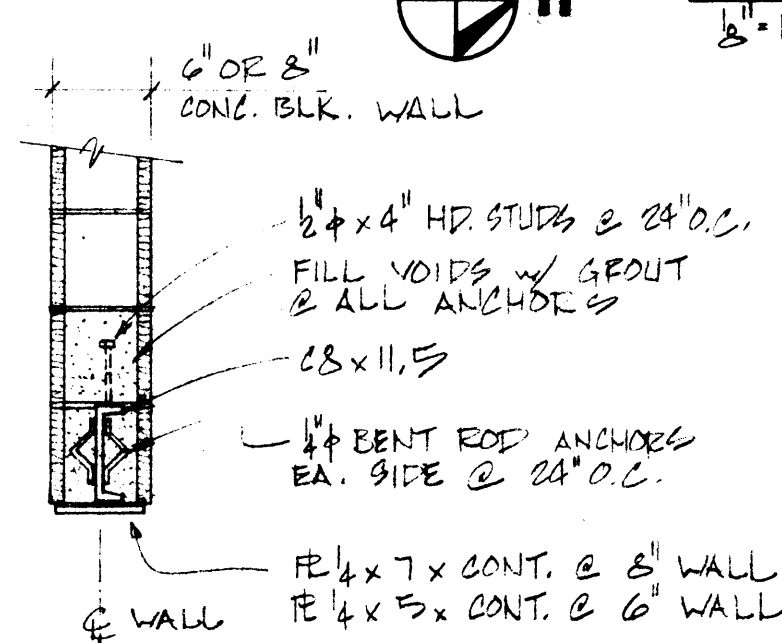 1/8" =
6" OR 8"
CONC. BLK. WALL
1/2"ϕ x 4" HD. STUDS @ 24" O.C.
FILL VOIDS w/ GROUT
@ ALL ANCHORS
C8 x 11.5
1/4"ϕ BENT ROD ANCHORS
EA. SIDE @ 24" O.C.
PL 1/4 x 7 x CONT. @ 8" WALL
PL 1/4 x 5 x CONT. @ 6" WALL
CL WALL